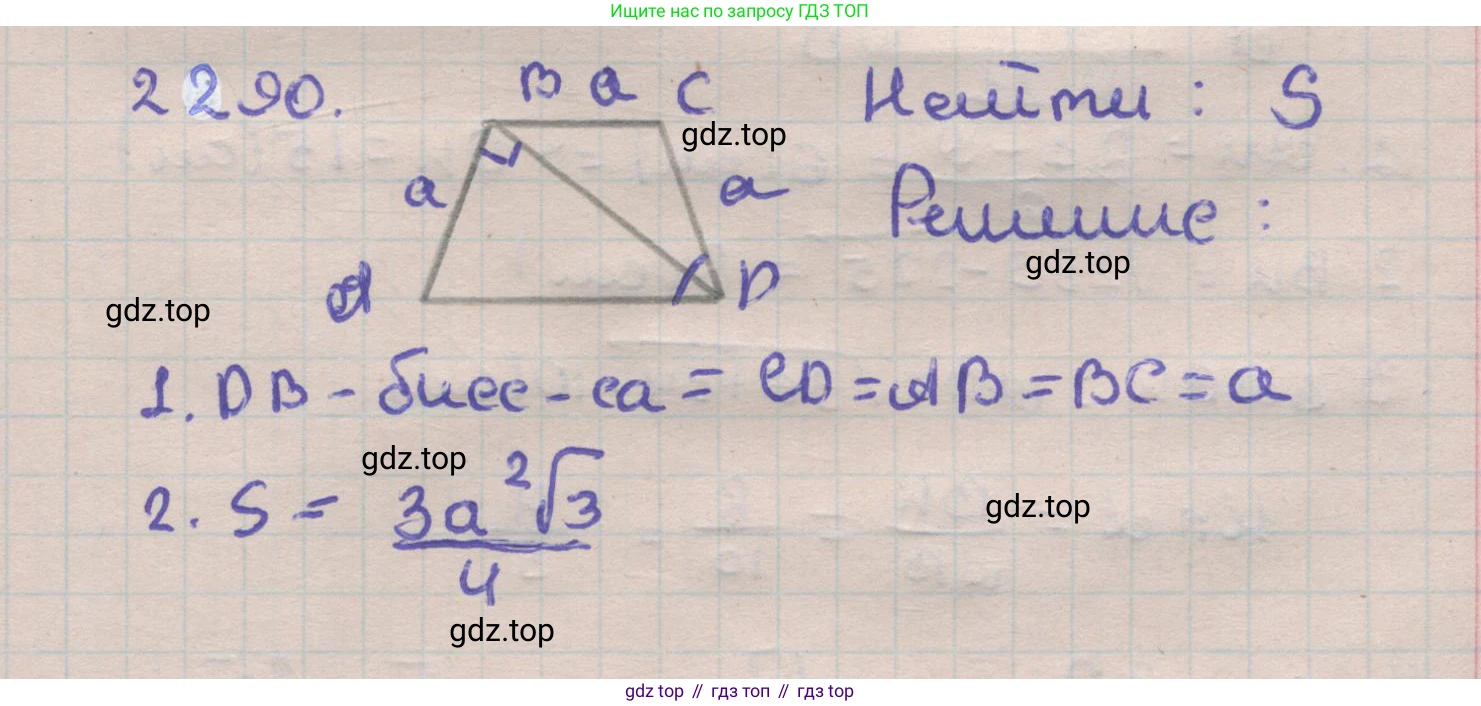 Ищите нас по запросу ГДЗ ТОП
2290. B a C Найти : S
gdz.top
a a
Решение :
gdz.top
A D
gdz.top
1. DB - бисс-са = CD = AB = BC = a
gdz.top
2. S = 3a²√3 / 4
gdz.top
gdz.top
gdz top // гдз топ // гдз top